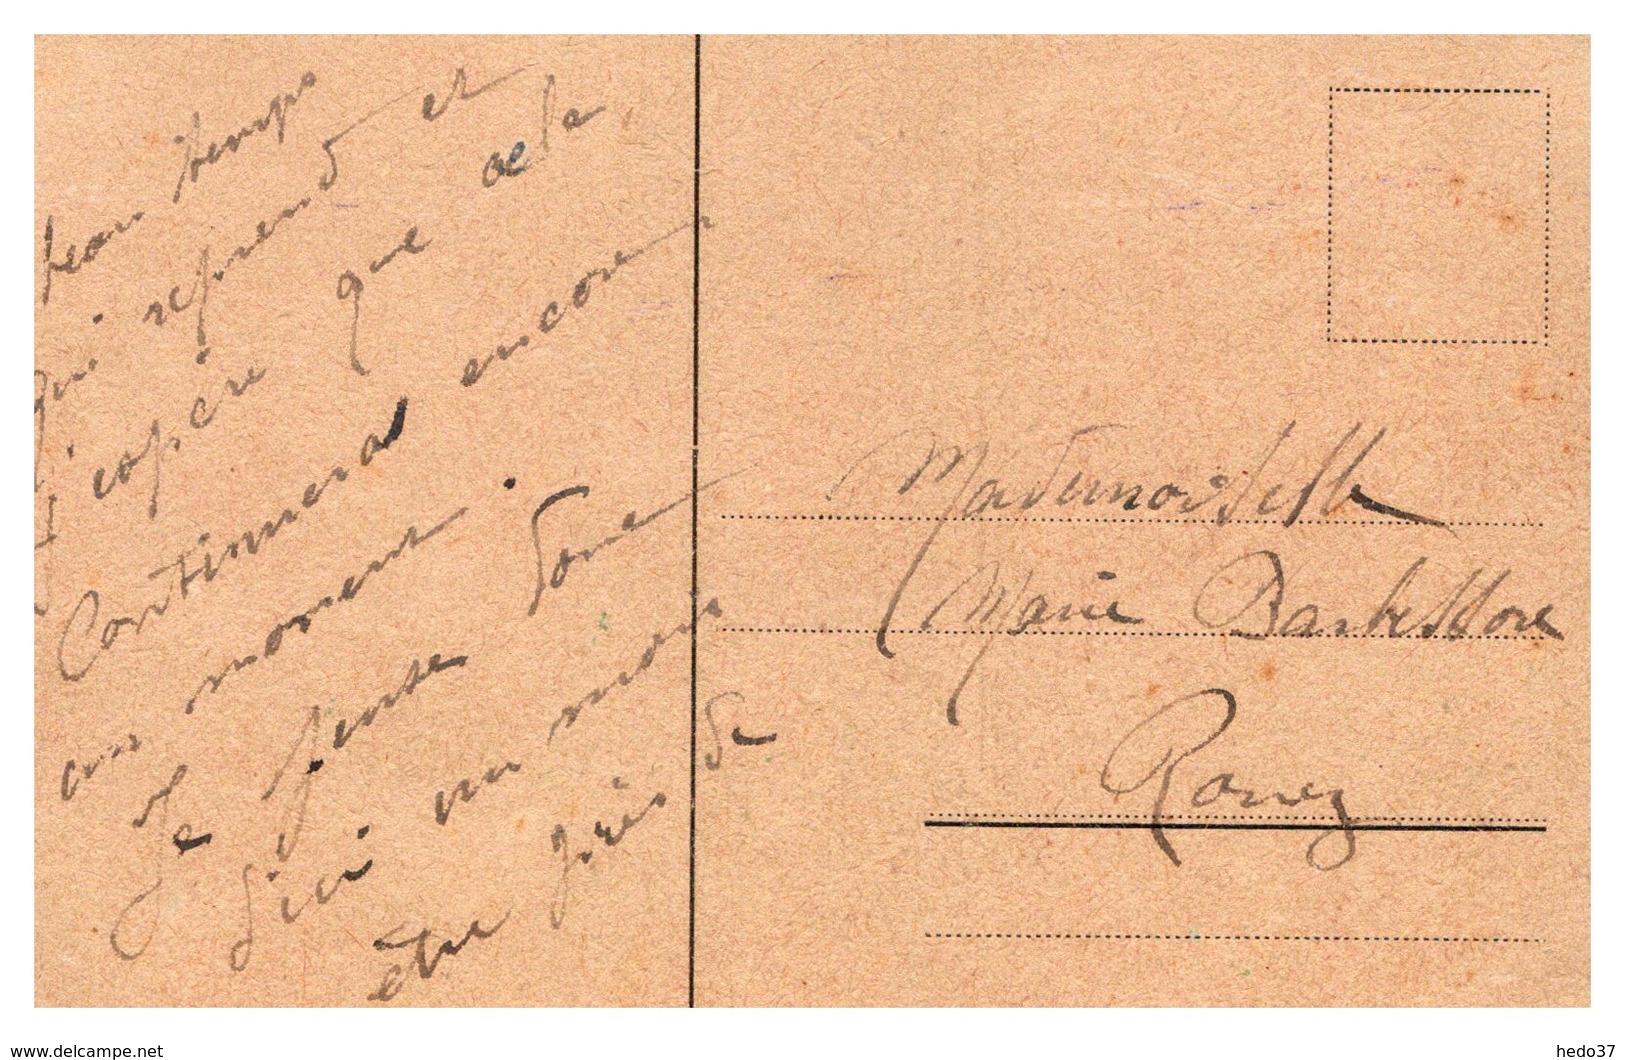 beau temps
qui reprend et
j'espère que cela
Continuera encore
un moment.
Je pense donc
d'ici un mois
être près de
Mademoiselle
Marie Barbessore
Ronez
www.delcampe.net
hedo37